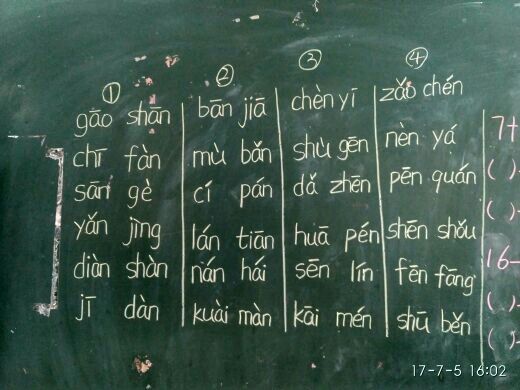 ① ② ③ ④
gāo shān bān jiā chèn yī zǎo chén
chī fàn mù bǎn shù gēn nèn yá
sān gè cí pán dǎ zhēn pēn quán
yǎn jìng lán tiān huā pén shēn shǒu
diàn shàn nán hái sēn lín fēn fāng
jī dàn kuài màn kāi mén shū běn
7+
( )-
( )-
16-
( )-
( )-
17-7-5 16:02